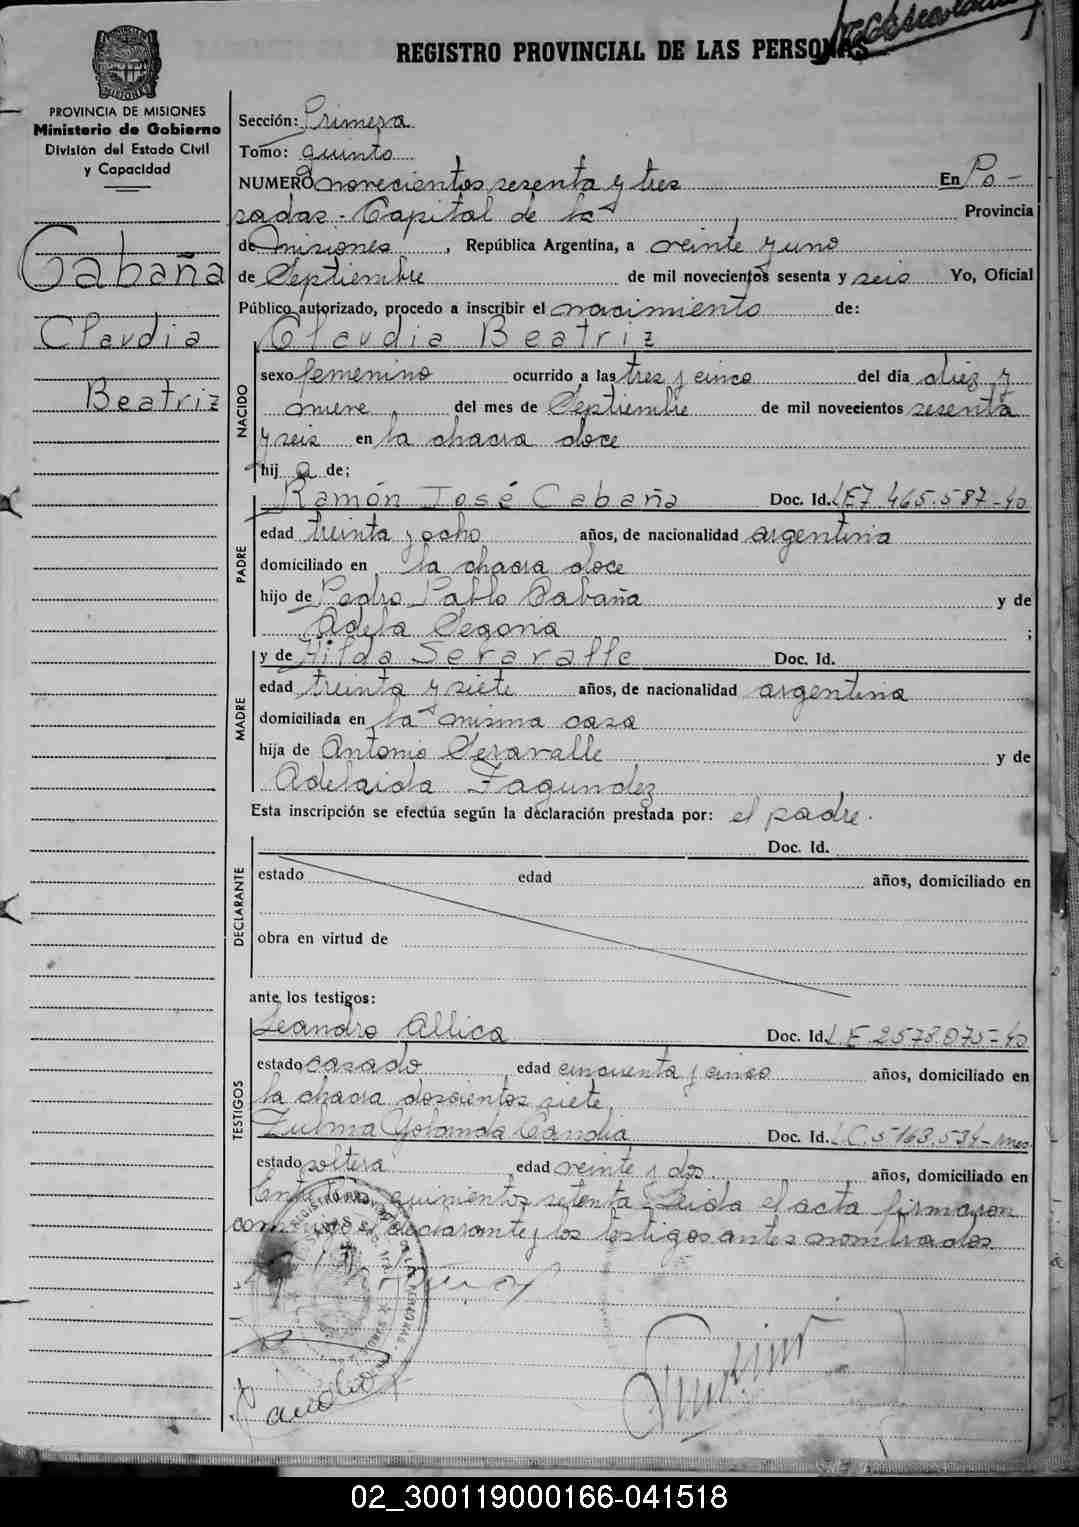 REGISTRO PROVINCIAL DE LAS PERSONAS
PROVINCIA DE MISIONES
Ministerio de Gobierno
División del Estado Civil
y Capacidad
Cabaña
Claudia
Beatriz
Sección: Primera
Tomo: quinto
NUMERO novecientos sesenta y tres En Po-
sadas - Capital de la Provincia
de Misiones, República Argentina, a veinte y uno
de Septiembre de mil novecientos sesenta y seis Yo, Oficial
Público autorizado, procedo a inscribir el nacimiento de:
Claudia Beatriz
NACIDO
sexo femenino ocurrido a las tres y cinco del día diez y
nueve del mes de Septiembre de mil novecientos sesenta
y seis en la chacra doce
hij a de;
PADRE
Ramón José Cabaña Doc. Id. LE7.465.587-40
edad treinta y ocho años, de nacionalidad argentina
domiciliado en la chacra doce
hijo de Pedro Pablo Cabaña y de
Adela Segovia ;
MADRE
y de Hilda Seravalle Doc. Id.
edad treinta y siete años, de nacionalidad argentina
domiciliada en la misma casa
hija de Antonio Seravalle y de
Adelaida Fagundez
Esta inscripción se efectúa según la declaración prestada por: el padre.
DECLARANTE
Doc. Id.
estado edad años, domiciliado en
obra en virtud de
ante los testigos:
TESTIGOS
Leandro Allica Doc. Id. L.E.2578.075-40
estado casado edad cincuenta y cinco años, domiciliado en
la chacra doscientos siete
Zulma Yolanda Candia Doc. Id. L.C.5163.534-mnes
estado soltera edad veinte y dos. años, domiciliado en
Entre Ríos quinientos setenta Leida el acta firmaron
conmigo el declarante y los testigos antes nombrados
02_300119000166-041518